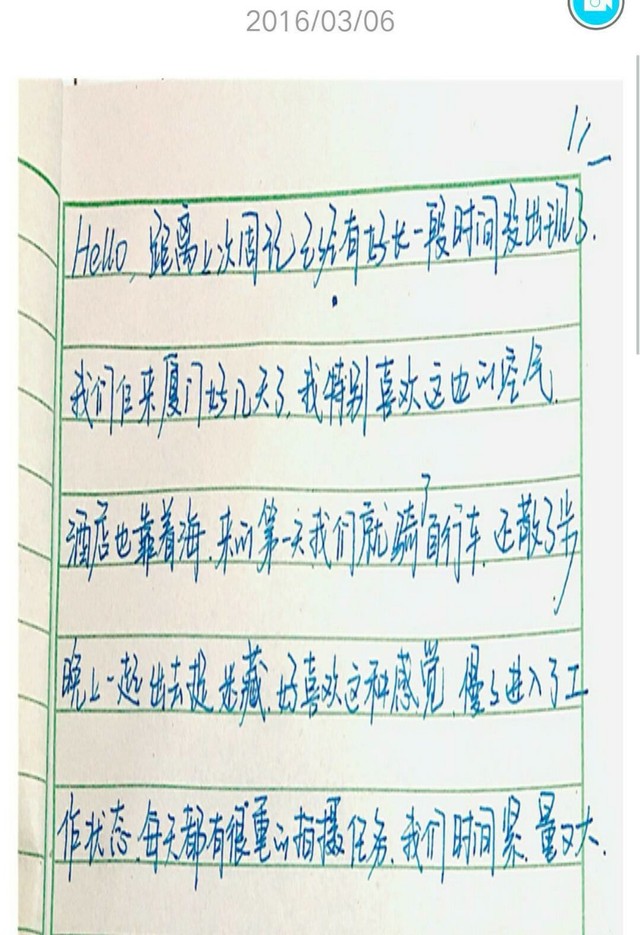 2016/03/06
Hello, 距离上次周记已经有好长一段时间没出现了.
我们但来厦门好几天了,我特别喜欢这边的空气.
酒店也靠着海.来的第一天我们就骑了自行车.还散了步.
晚上一起出去捉迷藏.好喜欢这种感觉.慢慢进入了工
作状态.每天都有很重的拍摄任务.我们时间紧.量又大.